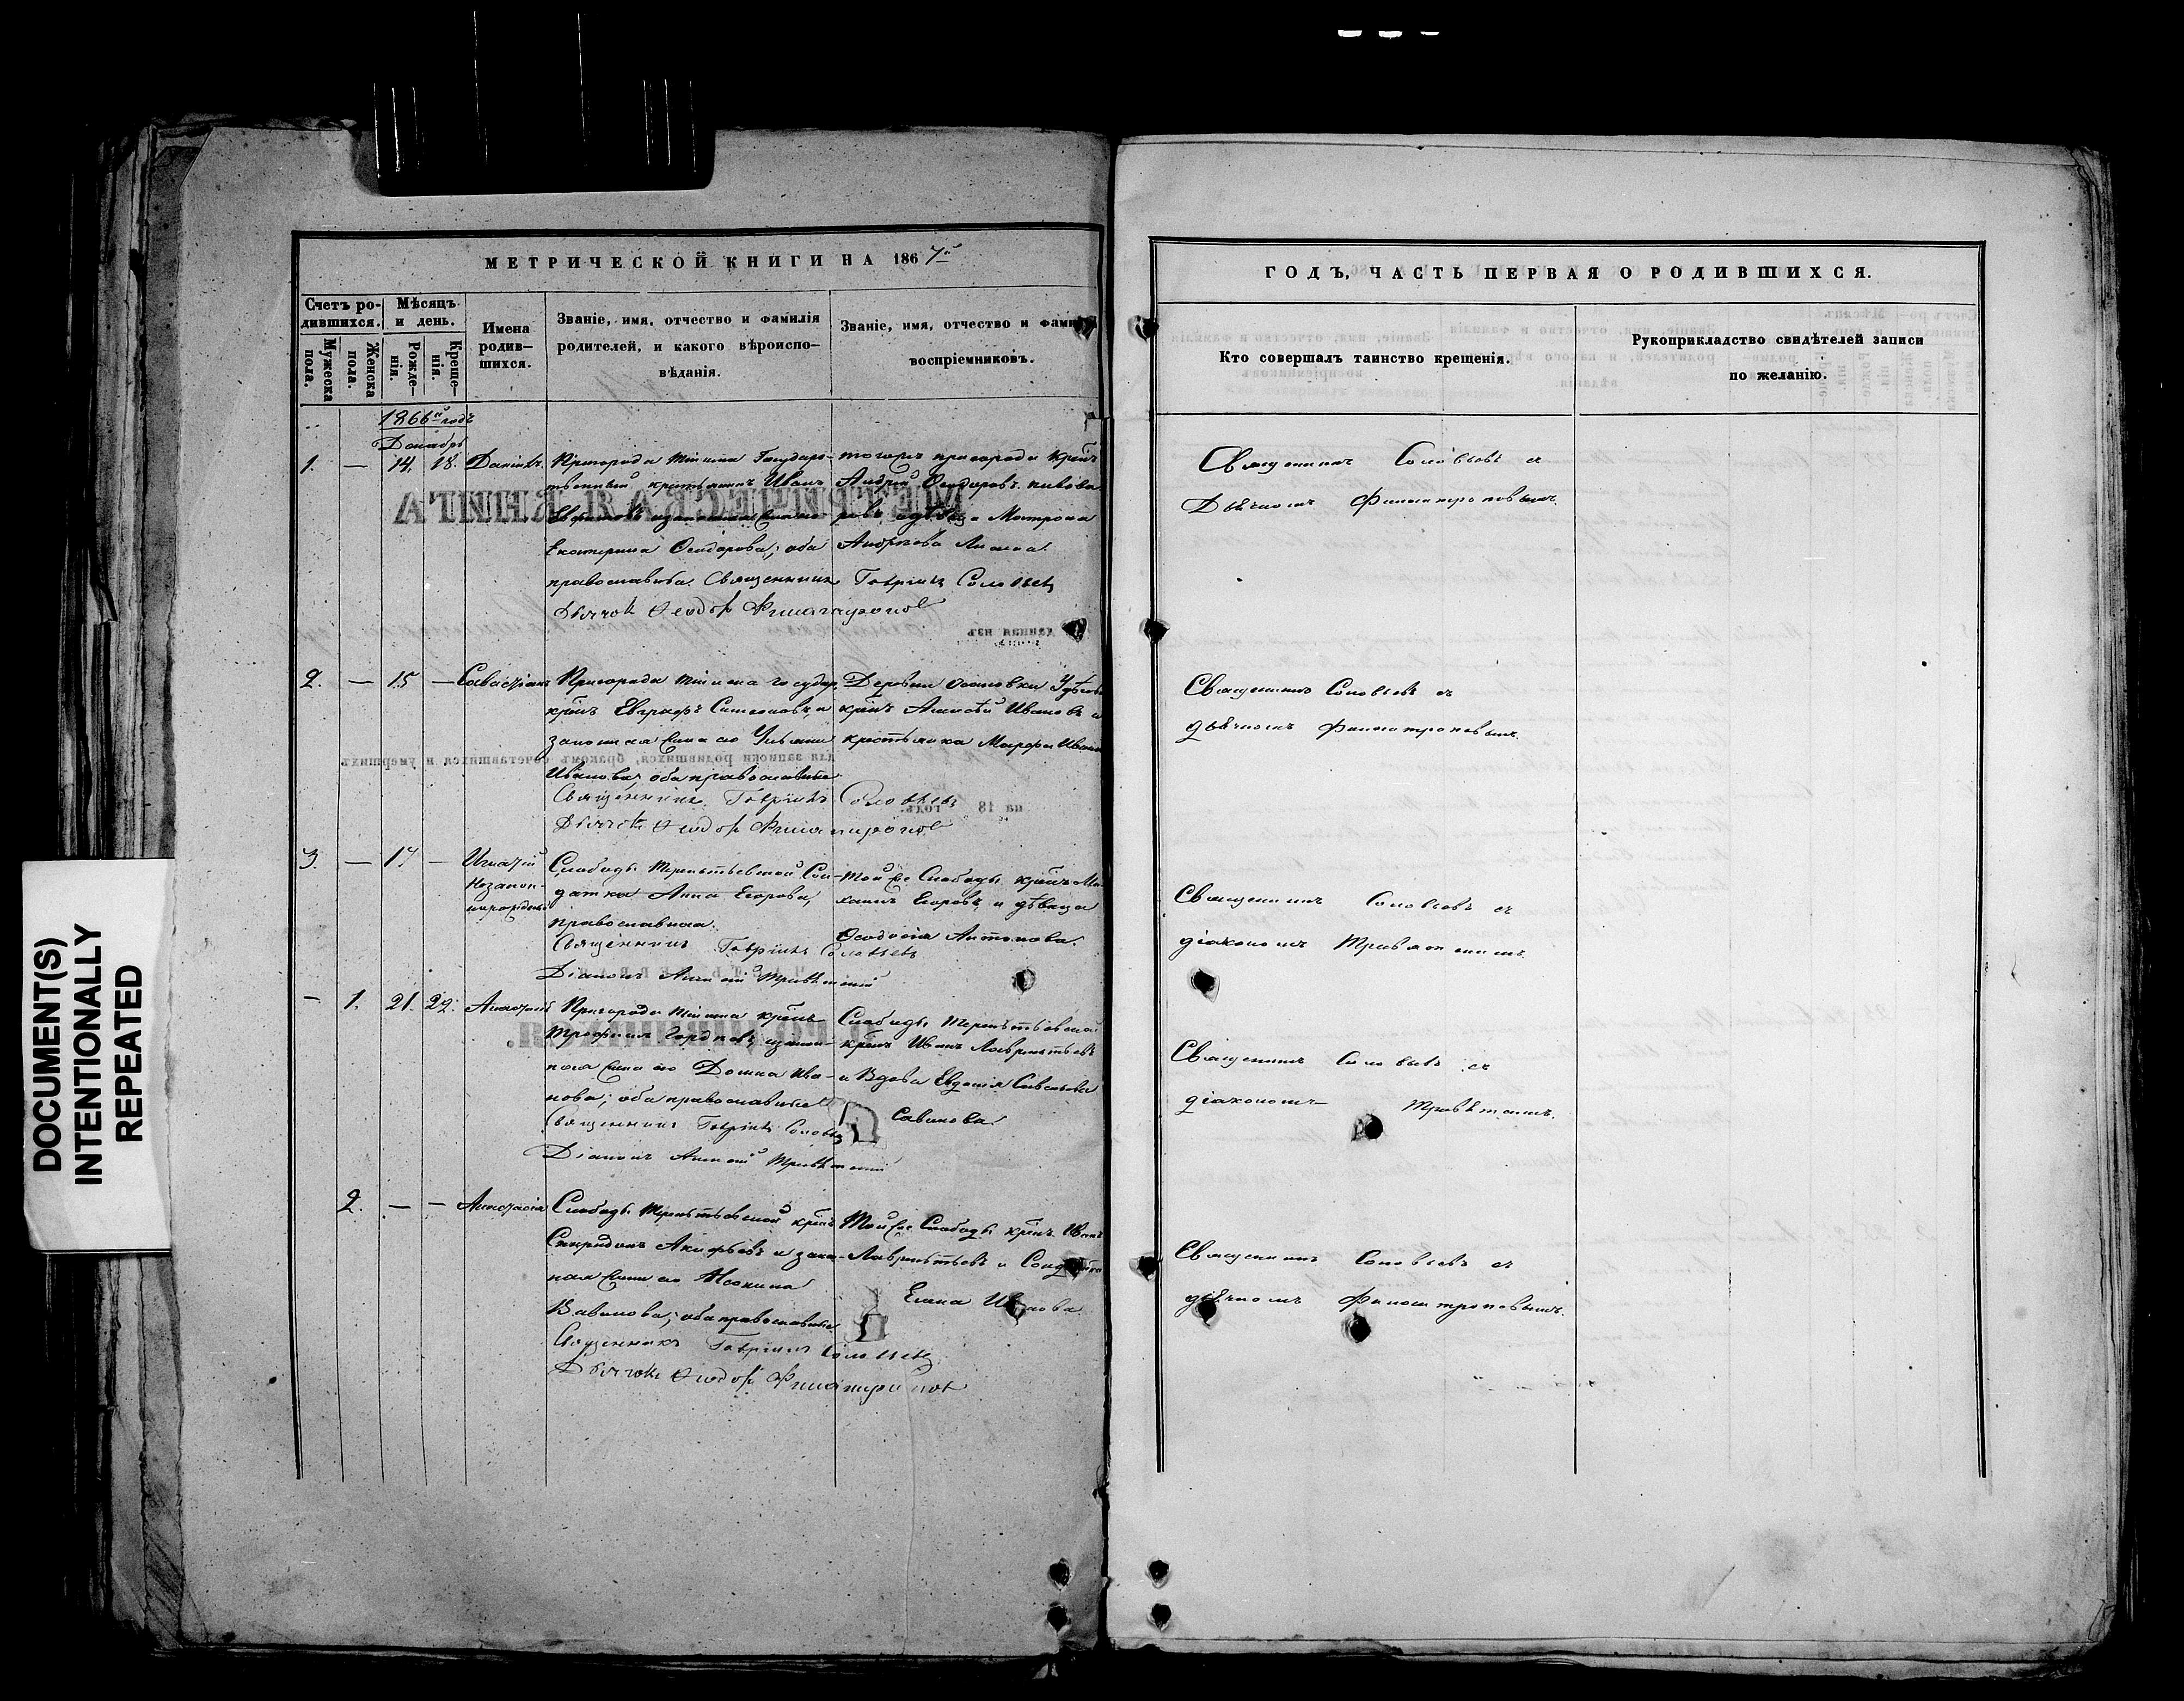 DOCUMENT(S)
INTENTIONALLY
REPEATED
МЕТРИЧЕСКОЙ КНИГИ НА 1867й
Счетъ ро-
дившихся.
Мужеска
пола.
Женска
пола.
Мѣсяцъ
и день.
Рожде-
нія.
Креще-
нія.
Имена
родив-
шихся.
Званіе, имя, отчество и фамилія
родителей, и какого вѣроиспо-
вѣданія.
Званіе, имя, отчество и
воспріемниковъ.
1866й годъ
Декабрь
1. — 14. 18. Даніилъ.
Пригорода Тіинска Государ-
ственный крестьянинъ Иванъ
законная жена его
Екатерина Ѳеодорова; оба
православные. Священникъ Гавріилъ Соловьевъ
Дьячокъ Ѳеодоръ Филантроповъ
тогоже пригорода крест.
Андрей Ѳеодоровъ
дѣвица Матрона
Андреева
2. — 15 — Савастіанъ
Пригорода Тіинска государ.
крест. Евграфъ Симеоновъ, и
законная жена его Ульяна
Иванова; оба православные
Священникъ Гавріилъ Соловьевъ
Дьячокъ Ѳеодоръ Филантроповъ
Деревни
крест. Алексѣй Ивановъ и
крестьянка Марфа
3. — 17 — Игнатій
Незакон-
норожденный
Слободы Терентьевской Сол-
датка Анна Егорова,
православная.
Священникъ Гавріилъ Соловьевъ
Діаконъ Алексій
Той же Слободы крест.
Егоровъ, и дѣвица
Ѳеодосія Антонова.
— 1. 21. 22. Анастасія
Пригорода Тіинска крест.
Трофимъ Гордѣевъ, и закон-
ная жена его Домна Ива-
нова; оба православные
Священникъ Гавріилъ Соловьевъ
Діаконъ Алексій
Слободы Терентьевской
крест. Иванъ Лаврентьевъ
и Вдова Евдокія Савельева
Савинова.
2. — — Анастасія
Слободы Терентьевской крест.
Спиридонъ Акифьевъ и закон-
ная жена его
Вавилова; оба православные
Священникъ Гавріилъ Соловьевъ
Дьячокъ Ѳеодоръ Филантроповъ
Той же Слободы крест. Иванъ
Лаврентьевъ и Солдатка
Елена Иванова.
ГОДЪ, ЧАСТЬ ПЕРВАЯ О РОДИВШИХСЯ.
Кто совершалъ таинство крещенія.
Рукоприкладство свидѣтелей записи
по желанію.
Священникъ Соловьевъ съ
Дьячкомъ Филантроповымъ.
Священникъ Соловьевъ съ
дьячкомъ Филантроповымъ.
Священникъ Соловьевъ съ
діакономъ
Священникъ Соловьевъ съ
діакономъ
Священникъ Соловьевъ съ
дьячкомъ Филантроповымъ.